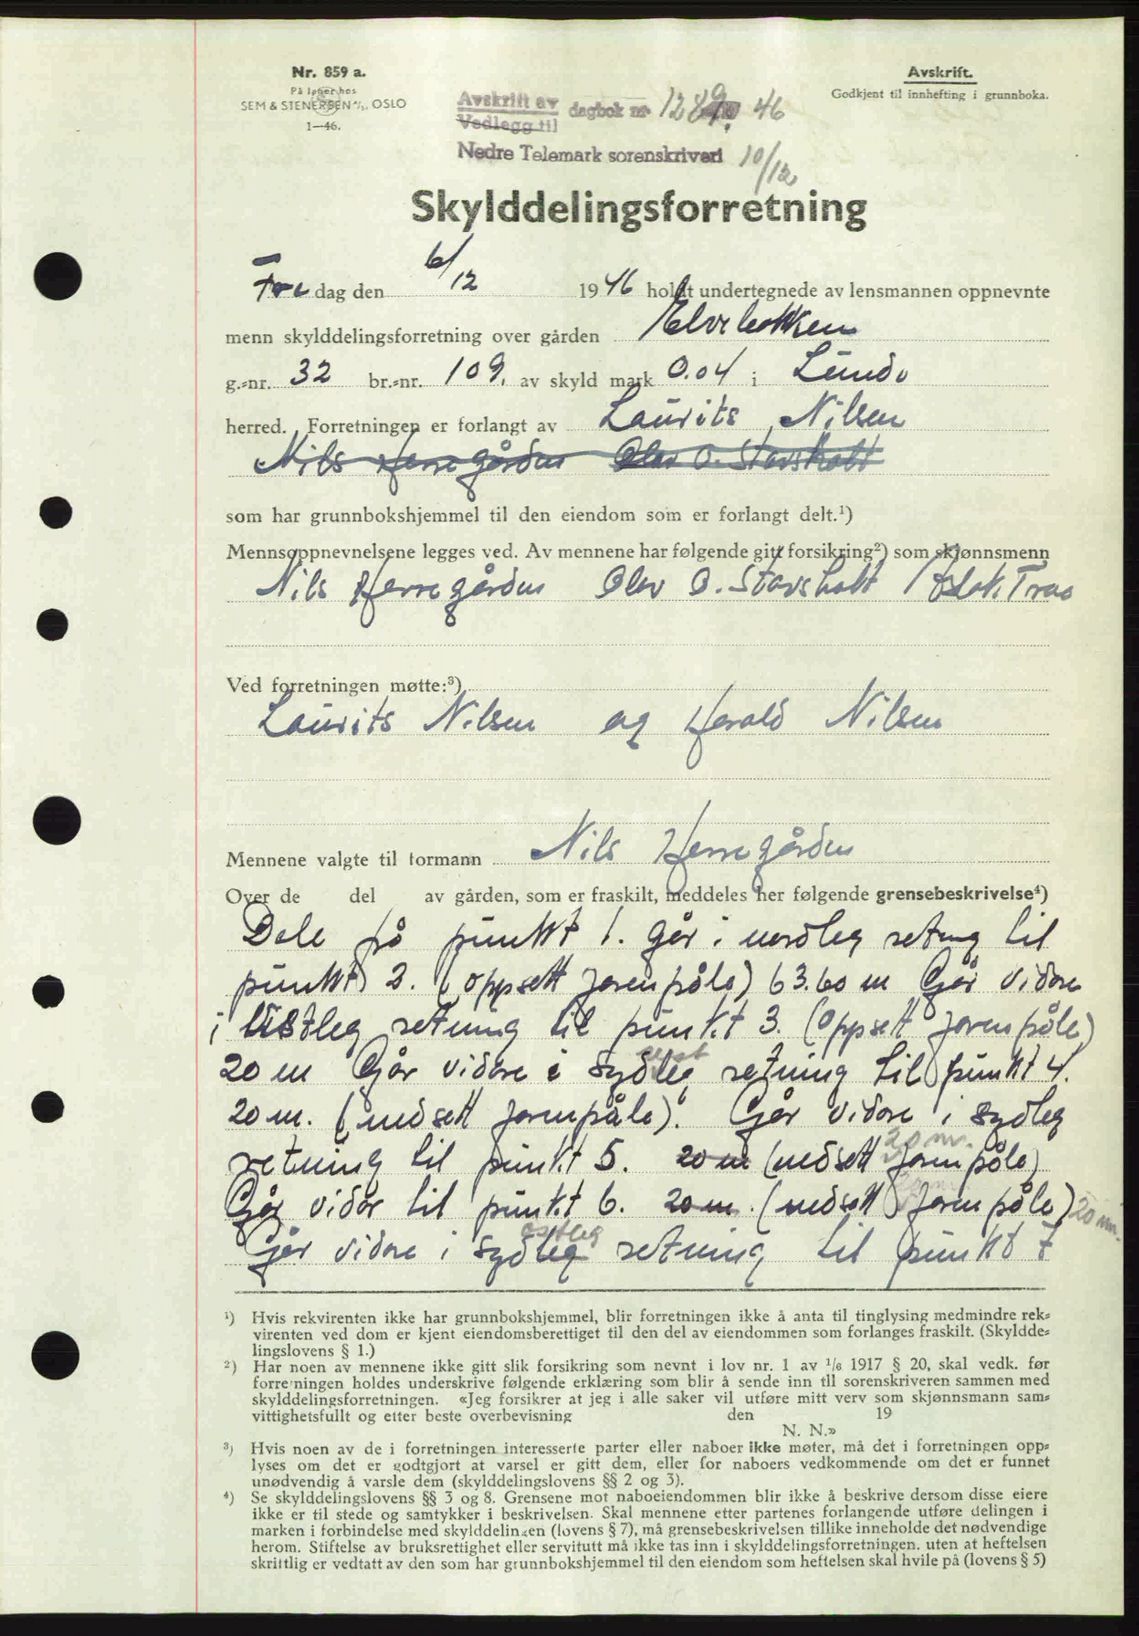 Nr. 859 a.
På lager hos
SEM & STENERSEN A/S, OSLO
1—46.
Avskrift.
Godkjent til innhefting i grunnboka.
Avskrift av
Vedlegg til
dagbok nr 1289 46
Nedre Telemark sorenskriveri 10/12
Skylddelingsforretning
Fre dag den 6/12 1946 holdt undertegnede av lensmannen oppnevnte
menn skylddelingsforretning over gården Elvebakken
g.-nr. 32 br.-nr. 109, av skyld mark 0.04 i Lunde
herred. Forretningen er forlangt av Laurits Nilsen
Nils Herregården Olav O. Stavsholt
som har grunnbokshjemmel til den eiendom som er forlangt delt.¹)
Mennsoppnevnelsene legges ved. Av mennene har følgende gitt forsikring²) som skjønnsmenn
Nils Herregården Olav O. Stavsholt Aslak Trae
Ved forretningen møtte:³)
Laurits Nilsen og Harald Nilsen
Mennene valgte til formann Nils Herregården
Over de del av gården, som er fraskilt, meddeles her følgende grensebeskrivelse⁴)
Dele på punkt 1. går i nordleg retning til
punkt 2. (oppsett jarenpåle) 63.60 m Går vidare
i vestleg retning til punkt 3. (oppsett jarenpåle)
20 m Går vidare i sydvestleg retning til punkt 4.
20 m. (nedsett jarenpåle). Går vidare i sydleg
retning til punkt 5. 20 m (nedsett jarenpåle) 20 m.
Går vidar til punkt 6. 20 m. (nedsett jarenpåle) 20 m.
Går vidare i sydøstleg retning til punkt 7
¹) Hvis rekvirenten ikke har grunnbokshjemmel, blir forretningen ikke å anta til tinglysing medmindre rek-
virenten ved dom er kjent eiendomsberettiget til den del av eiendommen som forlanges fraskilt. (Skyldde-
lingslovens § 1.)
²) Har noen av mennene ikke gitt slik forsikring som nevnt i lov nr. 1 av 1/6 1917 § 20, skal vedk. før
forretningen holdes underskrive følgende erklæring som blir å sende inn til sorenskriveren sammen med
skylddelingsforretningen. «Jeg forsikrer at jeg i alle saker vil utføre mitt verv som skjønnsmann sam-
vittighetsfullt og etter beste overbevisning den 19
N. N.»
³) Hvis noen av de i forretningen interesserte parter eller naboer ikke møter, må det i forretningen opp-
lyses om det er godtgjort at varsel er gitt dem, eller for naboers vedkommende om det er funnet
unødvendig å varsle dem (skylddelingslovens §§ 2 og 3).
⁴) Se skylddelingslovens §§ 3 og 8. Grensene mot naboeiendommen blir ikke å beskrive dersom disse eiere
ikke er til stede og samtykker i beskrivelsen. Skal mennene etter partenes forlangende utføre delingen i
marken i forbindelse med skylddelingen (lovens § 7), må grensebeskrivelsen tillike inneholde det nødvendige
herom. Stiftelse av bruksrettighet eller servitutt må ikke tas inn i skylddelingsforretningen. uten at heftelsen
skriftlig er vedtatt av den som har grunnbokshjemmel til den eiendom som heftelsen skal hvile på (lovens § 5)